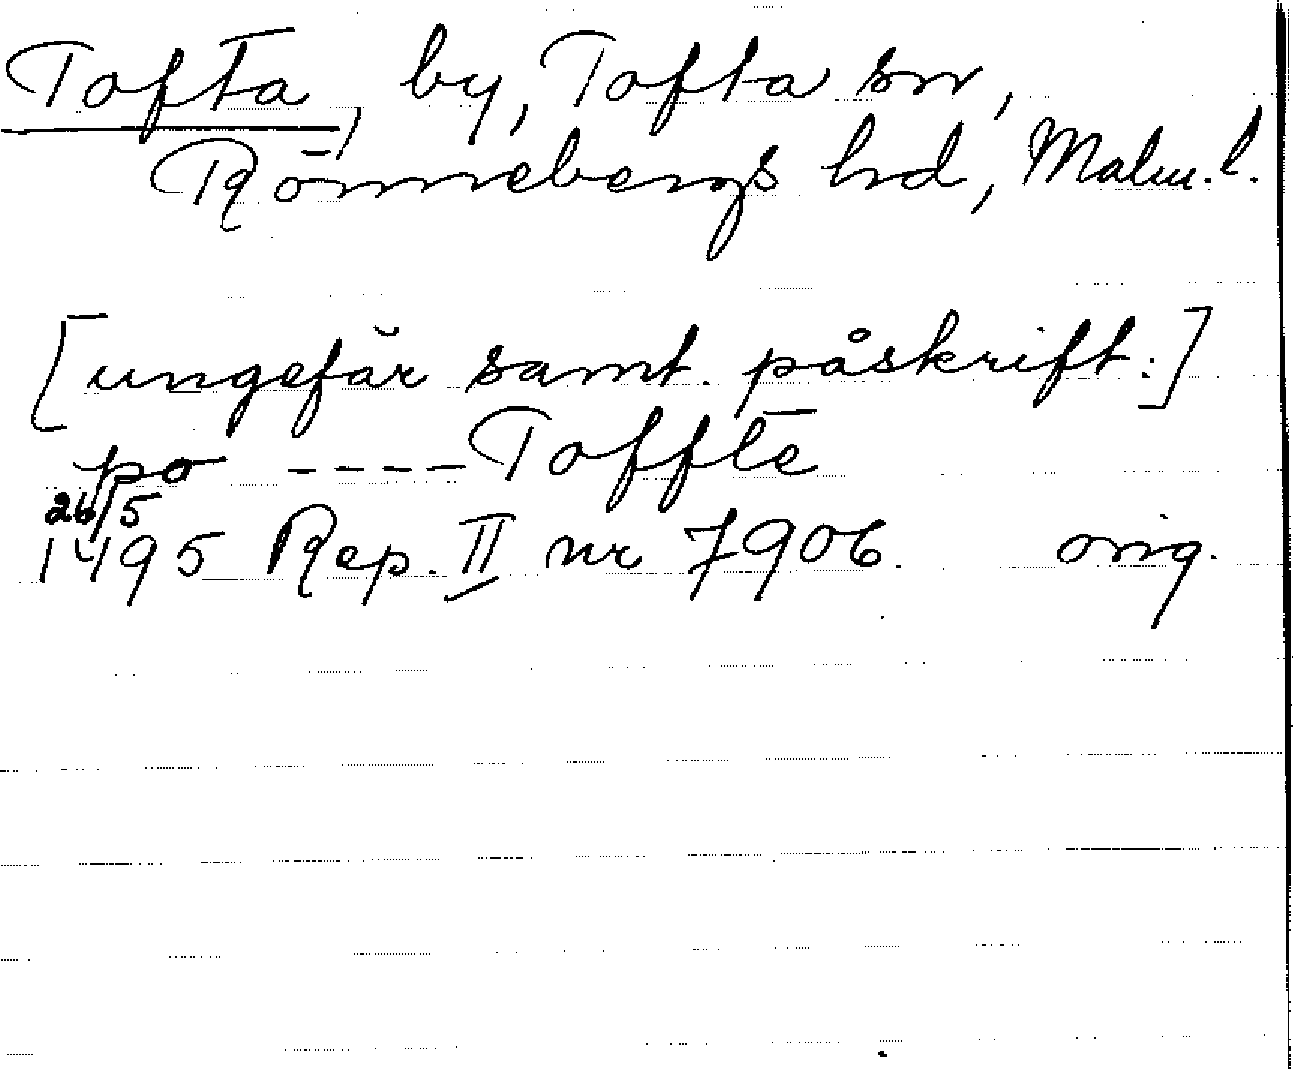 Tofta, by, Tofta sn,
Rönnebergs hd, Malm. l.
[ungefär samt. påskrift.:]
po ---- Toffte
26/5
1495 Rep. II nr 7906. orig.